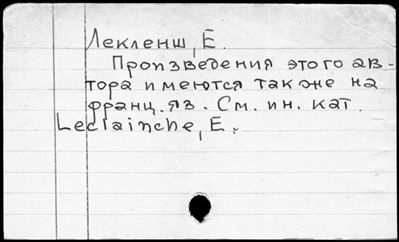 Лекленш, Е.
Произведения этого ав-
тора имеются также на
франц. яз. См. ин. кат.
Leclainche, E.